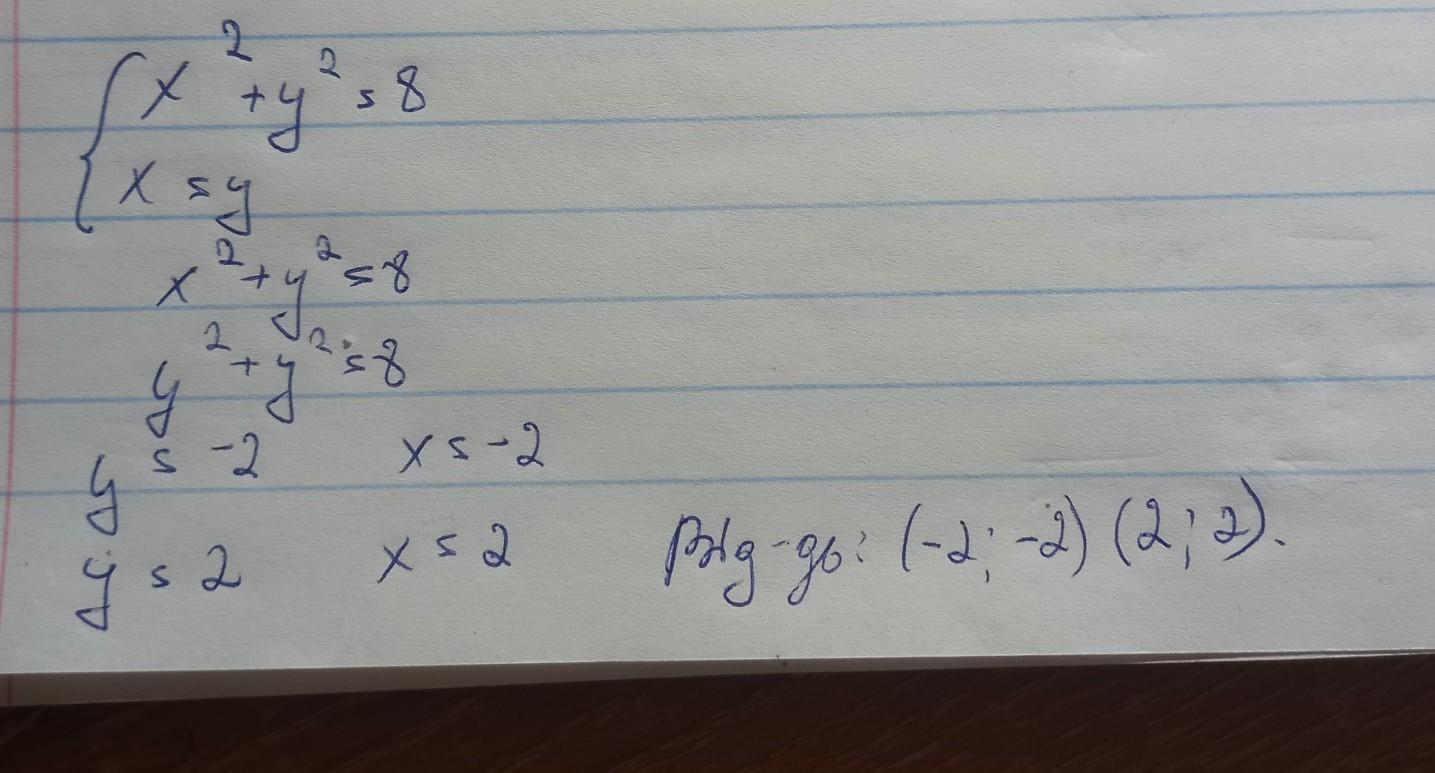 { x² + y² = 8
x = y
x² + y² = 8
y² + y² = 8
y = -2 x = -2
y = 2 x = 2 Від-дь: (-2; -2) (2; 2).